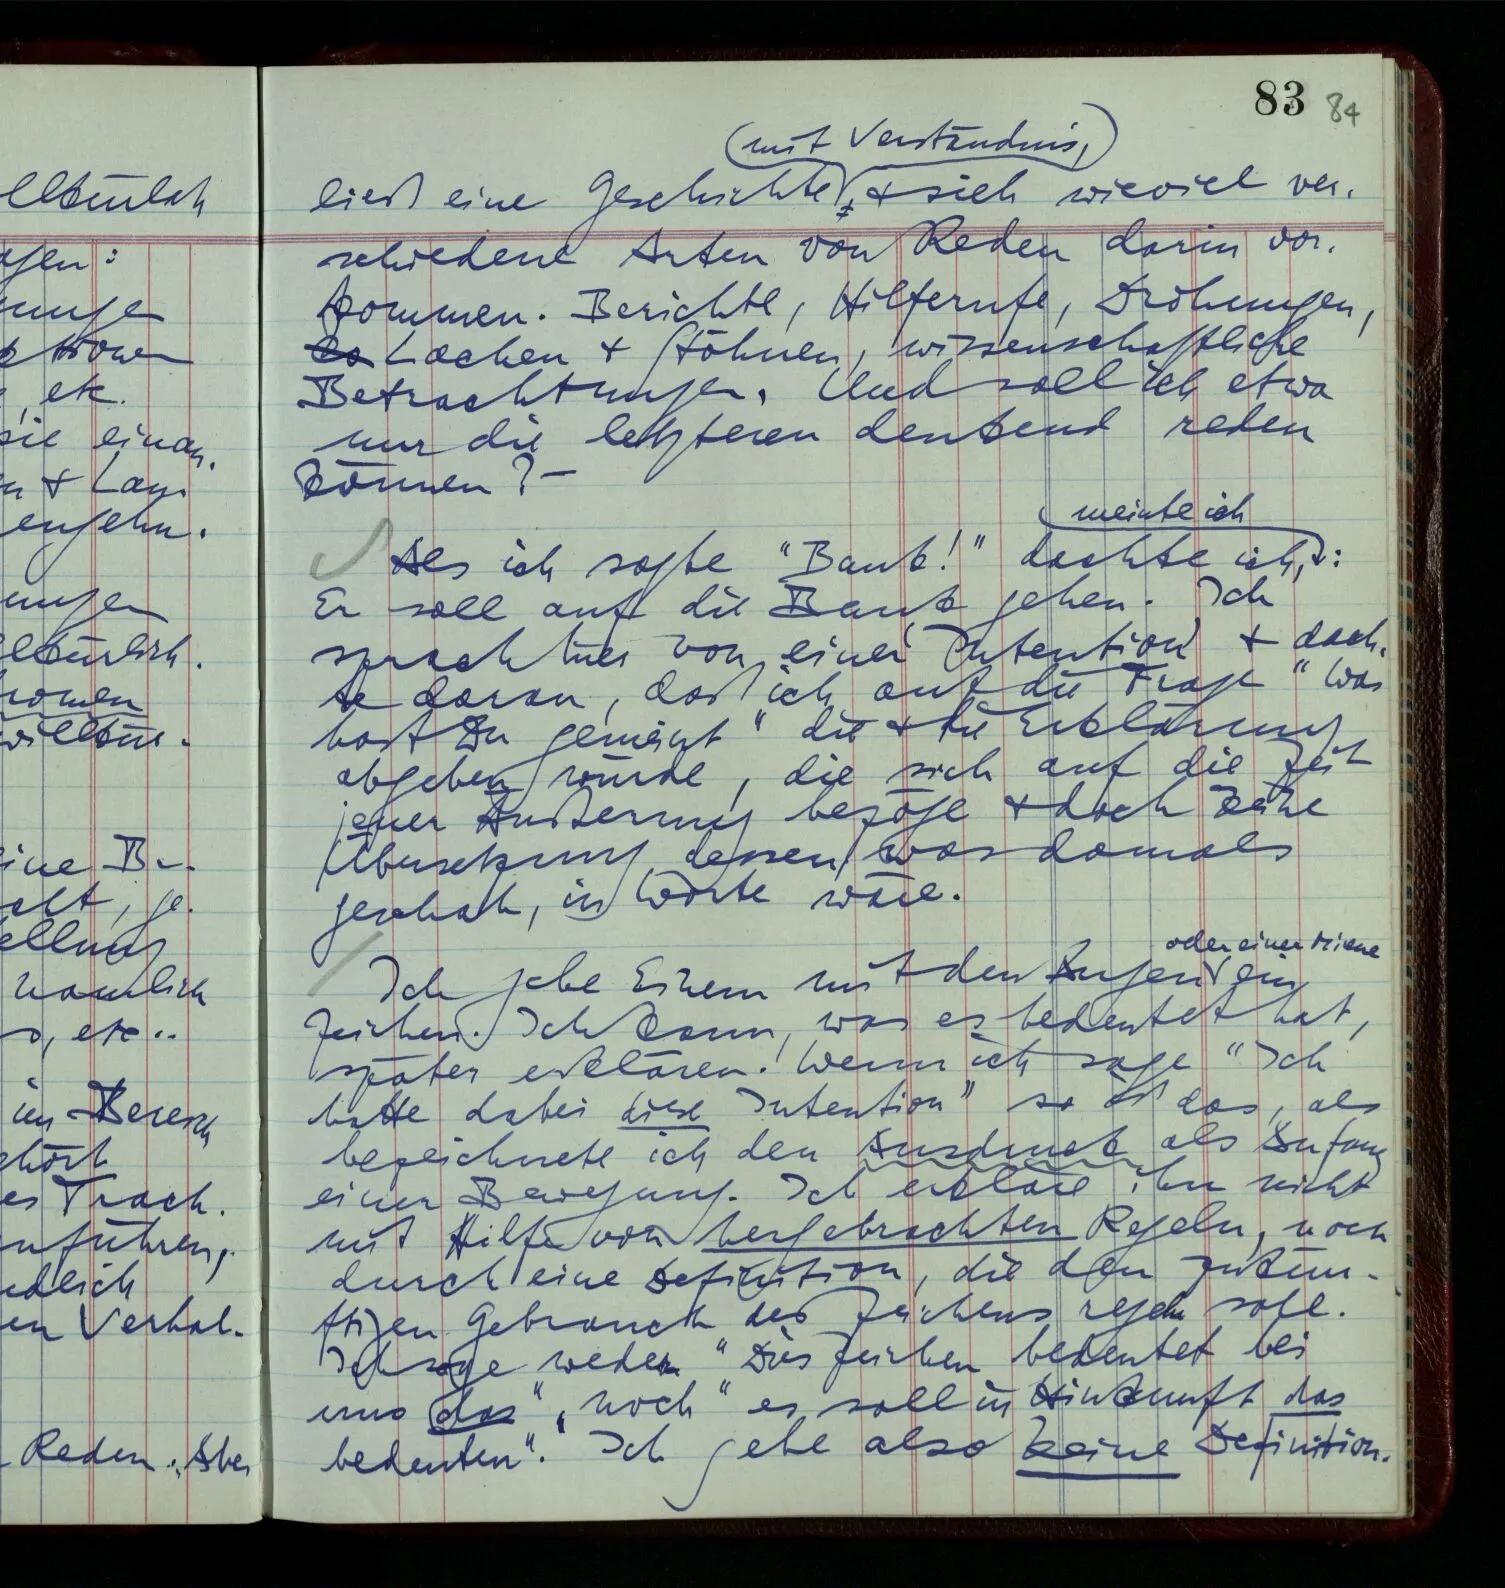 83 84
(mit Verständnis,)
lies eine Geschichte, + sieh wieviel ver-
schiedene Arten von Reden darin vor-
kommen. Berichte, Hilferufe, Drohungen,
Lachen + Stöhnen, wissenschaftliche
Betrachtungen. Und soll ich etwa
nur die letzteren denkend reden
können? –
meinte ich
Als ich sagte "Bank!" dachte ich,:
Er soll auf die Bank gehen. Ich
sprach hier von einer Intention + dach-
te daran, daß ich auf die Frage "Was
hast Du gemeint" die + die Erklärung
abgeben würde, die sich auf die Zeit
jener Äußerung bezöge + doch keine
Übersetzung dessen, was damals
geschah, in Worte wäre.
oder einer Miene
Ich gebe Einem mit den Augen ein
Zeichen. Ich kann, was es bedeutet hat,
später erklären. Wenn ich sage "Ich
hatte dabei diese Intention" so ist das, als
bezeichnete ich den Ausdruck als Anfang
einer Bewegung. Ich erkläre ihn nicht
mit Hilfe von hergebrachten Regeln, noch
durch eine Definition, die den zukün-
ftigen Gebrauch des Zeichens regeln soll.
Ich sage weder "Dies Zeichen bedeutet bei
uns das", noch "es soll in Hinkunft das
bedeuten". Ich gebe also keine Definition.
llkürlich
etc.
sie einan-
engehn.
llkürlich.
willkür-
eine Be-
ellung
nämlich
etc..
im Bereich
gehört
anführen,
en Verhal-
Reden. Aber